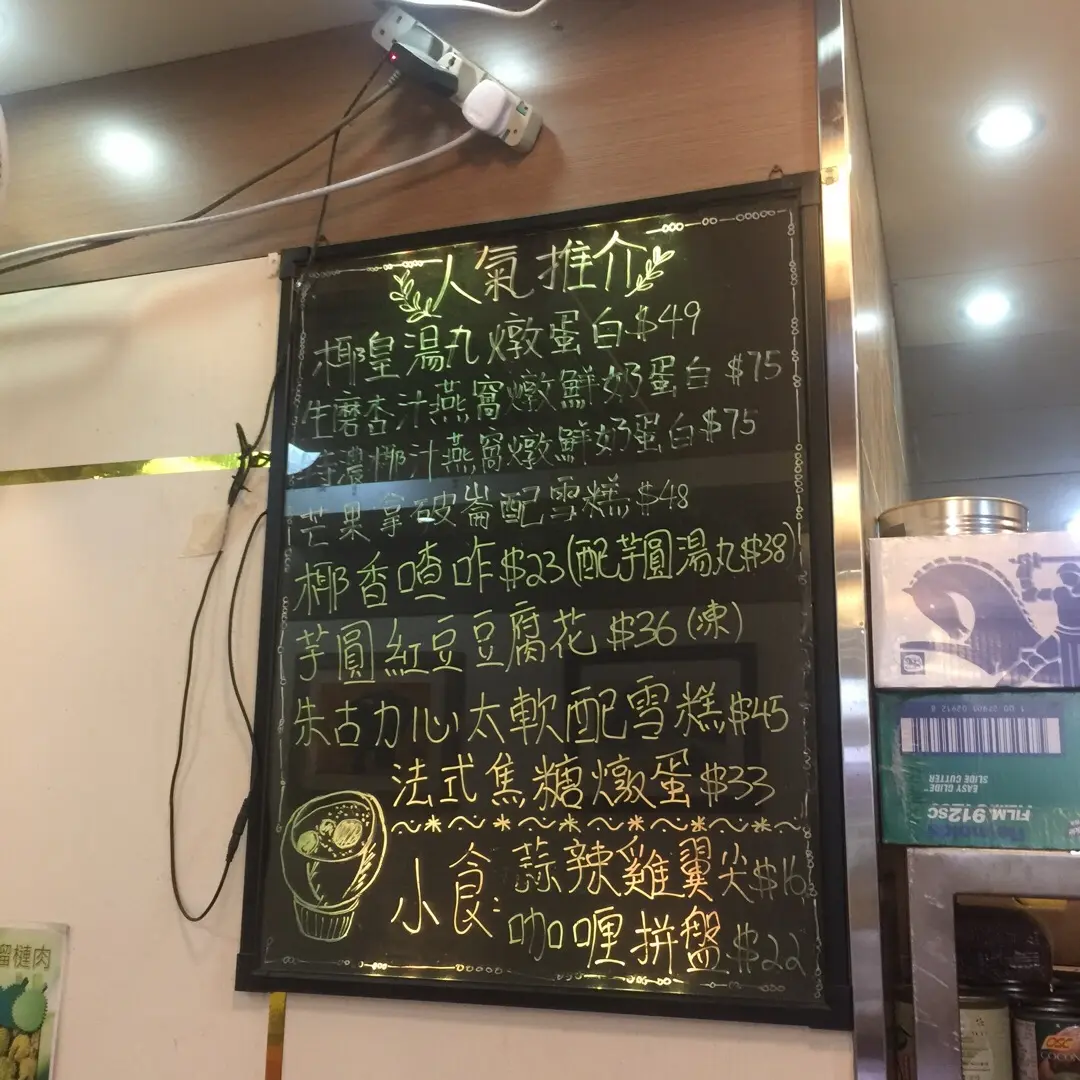 人氣推介
椰皇湯丸燉蛋白$49
生磨杏汁燕窩燉鮮奶蛋白 $75
濃椰汁燕窩燉鮮奶蛋白$75
芒果拿破崙配雪糕$48
椰香喳咋$23(配芋圓湯丸$38)
芋圓紅豆豆腐花$36(凍)
朱古力心太軟配雪糕$45
法式焦糖燉蛋$33
小食:
蒜辣雞翼尖$16
咖喱拼盤$22
榴槤肉
EASY GLIDE™
SLIDE CUTTER
FILM 912SC
Reynolds
COCON